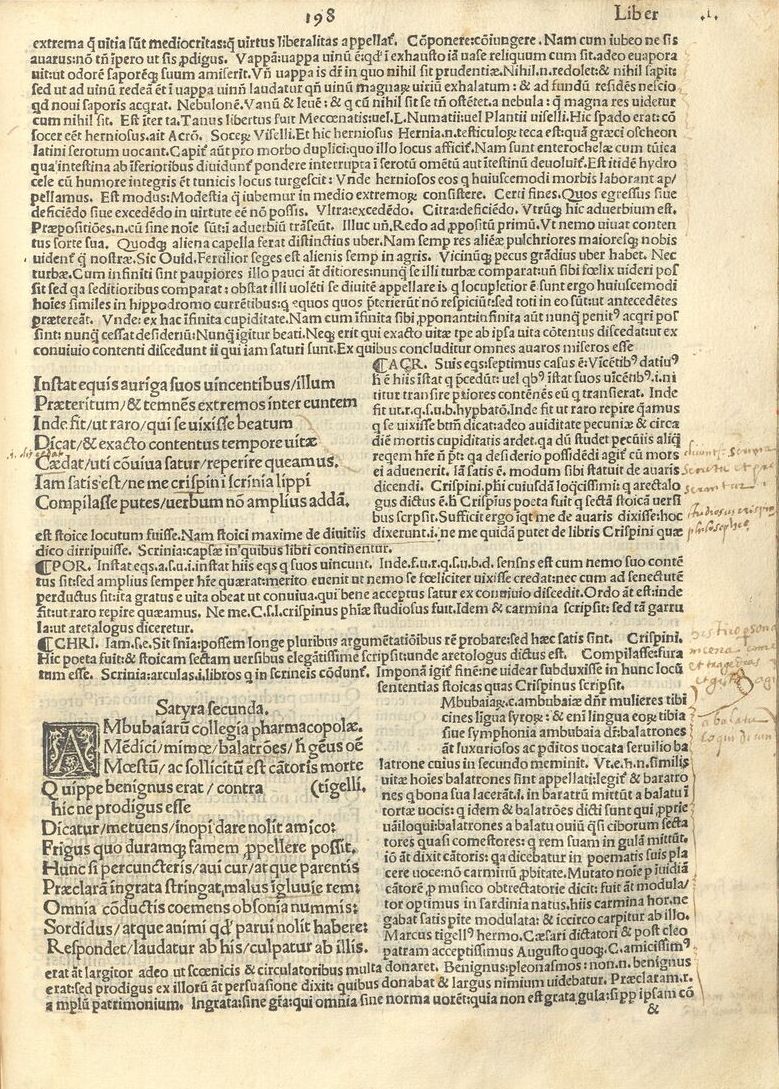 198 Liber .I.
extrema q̃ uitia sũt mediocritas:q̃ uirtus liberalitas appellat̃. Cõponere:cõiungere. Nam cum iubeo ne sis
auarus:nõ tñ ĩpero ut sis ꝓdigus. Vappã:uappa uinũ ẽ:qd' ĩ exhausto iã uase reliquum cum sit.adeo euapora
uit:ut odorẽ saporẽq; suum amiserit. Vñ uappa is dr̃ in quo nihil sit prudentiæ. Nihil.n.redolet:& nihil sapit:
sed ut ad uinũ redeã ẽt ĩ uappa uinũ laudatur qñ uinũ magnaꝝ uiriũ exhalatum: & ad fundũ residẽs nescio
qd noui saporis acqrat. Nebulonẽ. Vanũ & leuẽ: & q cũ nihil sit se tñ ostẽtet.a nebula: q̃ magna res uidetur
cum nihil sit. Est ĩter ta. Tanus libertus fuit Mecœnatis:uel.L.Numatii:uel Plantii uiselli. Hic spado erat: cõ
socer eẽt herniosus.ait Acrõ. Soceꝝ Viselli. Et hic herniosus Hernia.n.testiculoꝝ teca est:quã græci oscheon
latini serotum uocant. Capit̃ aũt pro morbo duplici:quo illo locus afficit̃. Nam sunt enterochelæ cum tũica
qua ĩntestina ab ĩferioribus diuidunt̃ pondere interrupta ĩ serotũ omẽtũ aut ĩtestinũ deuoluit̃. Est itidẽ hydro
cele cũ humore integris ẽt tunicis locus turgescit: Vnde herniosos eos q huiuscemodi morbis laborant ap/
pellamus. Est modus: Modestia q̃ iubemur in medio extremoꝝ consistere. Certi fines. Quos egressus siue
deficiẽdo siue excedẽdo in uirtute eẽ nõ possis. Vltra:excedẽdo. Citra:deficiẽdo. Vtrũq; hic aduerbium est.
Præpositiões.n.cũ sine noĩe sũt:ĩ aduerbiũ trãseũt. Illuc uñ. Redo ad ꝓpositũ primũ. Vt nemo uiuat conten
tus sorte sua. Quodq; aliena capella ferat distinctius uber. Nam semp res aliẽæ pulchriores maioresq; nobis
uidenť q̃ nostræ. Sic Ouid. Fertilior seges est alienis semp in agris. Vicinũq; pecus grãdius uber habet. Nec
turbæ. Cum infiniti sint paupiores illo pauci ãt ditiores: nunq̃ se illi turbæ comparat:uñ sibi fœlix uideri pos
sit sed qa seditioribus comparat: obstat illi uolẽti se diuitẽ appellare is q locupletior ẽ sunt ergo huiuscemodi
hoĩes similes in hippodromo currẽtibus: q equos quos p̃terierũt nõ respiciũt:sed toti in eo sũt:ut antecedẽtes
prætereãt. Vnde: ex hac ĩfinita cupiditate. Nam cum ĩfinita sibi, pponant:infinita aũt nunq̃ penit⁹ acqri pos
sint: nunq̃ cessat desideriũ: Nunq̃ igitur beati. Neq; erit qui exacto uitæ tpe ab ipsa uita cõtentus discedat:ut ex
conuiuio contenti discedunt ii qui iam saturi sunt. Ex quibus concluditur omnes auaros miseros esse
Instat equis auriga suos uincentibus/illum
Præteritum/& temnẽs extremos inter euntem
Inde fit/ut raro/qui se uixisse beatum
Dicat/& exacto contentus tempore uitæ
Cædat/uti cõuiua satur/reperire queamus.
Iam satis est/ne me crispini scrinia lippi
Compilasse putes/uerbum nõ amplius addã.
¶ACR. Suis eqs:septimus casus ẽ: Vĩcẽtib⁹ datiu⁹
h̃ ẽ hiis ĩstat q p̃cedũt: uel qb⁹ ĩstat suos uĩcẽtib⁹.i.ni
titur transire p̃tiores contẽnẽs eũ q transierat. Inde
fit ut.r.q.s.u.b.hypbatõ. Inde fit ut raro repire q̃amus
q se uixisse btm̃ dicat:adeo auiditate pecuniæ & circa
diẽ mortis cupiditatis ardet.qa dũ studet pecũiis aliq̃
reqem hr̃e ñ p̃t qa desiderio possidẽdi agit̃ cũ mors
ei aduenerit. Iã satis ẽ. modum sibi statuit de auaris
dicendi. Crispini. phi cuiusdã loq̃cissimi: q arectalo
gus dictus ẽ.h̃ Crispĩus poeta fuit q sectã stoicã uersi
bus scrpsit. Sufficit ergo iqt me de auaris dixisse:hoc
dixerunt.i.ne me quidã putet de libris Crispini quæ
est stoice locutum fuisse. Nam stoici maxime de diuitiis
dico dirripuisse. Scrinia:capsæ in quibus libri continentur.
¶POR. Instat eqs.a.s.u.i.instat hiis eqs q suos uincunt. Inde.f.u.r.q.s.u.b.d. sensns est cum nemo suo contẽ
tus sit:sed amplius semper hr̃e quærat:merito euenit ut nemo se fœliciter uixisse credat:nec cum ad senectutẽ
perductus sit:ita gratus e uita obeat ut conuiua.qui bene acceptus satur ex conuiuio discedit. Ordo ãt est:inde
fit:ut raro repire quæamus. Ne me.C.s.l.crispinus phiæ studiosus fuit. Idem & carmina scripsit: sed tã garru
la:ut aretalogus diceretur.
¶CHRI. Iam.s.e. Sit snĩa:possem longe pluribus argumẽtatiõibus rẽ probare:sed hæc satis sint. Crispini.
Hic poeta fuit:& stoicam sectam uersibus elegãtissime scripsit:unde aretologus dictus est. Compilasse:fura
tum esse. Scrinia:arculas.i.libros q in scrineis cõdunt̃. Imponã igit̃ finẽ:ne uidear subduxisse in hunc locũ
sententias stoicas quas Crispinus scripsit.
Satyra secunda.
AMbubaiarũ collegia pharmacopolæ.
Mẽdici/mimœ/balatrões/h̃ geũs oẽ
Mœstũ/ac sollicitũ est cãtoris morte
Quippe benignus erat/ contra (tigelli.
hic ne prodigus esse
Dicatur/metuens/inopi dare nolit amico:
Frigus quo duramq; famem ꝓpellere possit.
Hunc si percuncteris/aui cur/atque parentis
Præclarã ingrata stringat,malus igluuie rem:
Omnia cõductis coemens obsonia nummis:
Sordidus/atque animi qd' parui nolit habere:
Respondet/laudatur ab his/culpatur ab illis.
Mbubaiaꝝ.c.ambubaiæ dñr mulieres tibi
cines ligua syroꝝ: & enĩ lingua eoꝝ tibia
siue symphonia ambubaia dr̃:balatrones
ãt luxuriosos ac pditos uocata seruilio ba
latrone cuius in secundo meminit. Vt.e.h.n.similis
uitæ hoĩes balatrones sint appellati:legit̃ & baratro
nes q bona sua lacerãt.i. in baratrũ mittũt a balatu ĩ
tortæ uocis: q idem & balatrões dicti sunt qui ꝓprie
uãiloqui:balatrones a balatu ouiũ q̃si ciborum secta
tores quasi comestores: q rem suam in gulã mittũt.
iõ ãt dixit cãtoris: qa dicebatur in poematis suis pla
cere uoce:nõ carminũ ꝓbitate. Mutato noĩe p ĩuidiã
cãtorẽ ꝓ musico obtrectatorie dicit: fuit ãt modula/
tor optimus in sardinia natus.hiis carmina hor.ne
gabat satis pite modulata: & iccirco carpitur ab illo.
Marcus tigell⁹ hermo. Cæsari dictatori & post cleo
patram acceptissimus Augusto quoq;. C.amicissim⁹
erat ãt largitor adeo ut scœnicis & circulatoribus multa donaret. Benignus:pleonasmos: non.n. benignus
erat:sed prodigus ex illorũ ãt persuasione dixit: quibus donabat & largus nimium uidebatur. Præclaram.r.
amplũ patrimonium. Ingrata:sine gĩa:qui omnia sine norma uorẽt:quia non est grata gula:si pp ipsam cõ
&